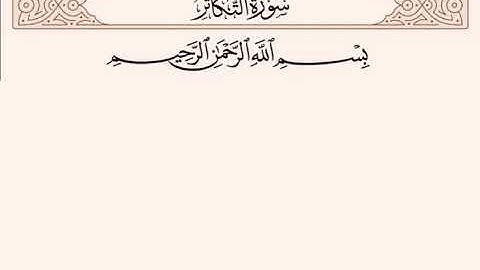 سُورَةُ التَّكَاثُرِ
بِسْمِ ٱللَّهِ ٱلرَّحْمَٰنِ ٱلرَّحِيمِ